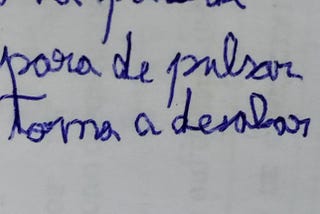 para de pulsar
torna a desabar